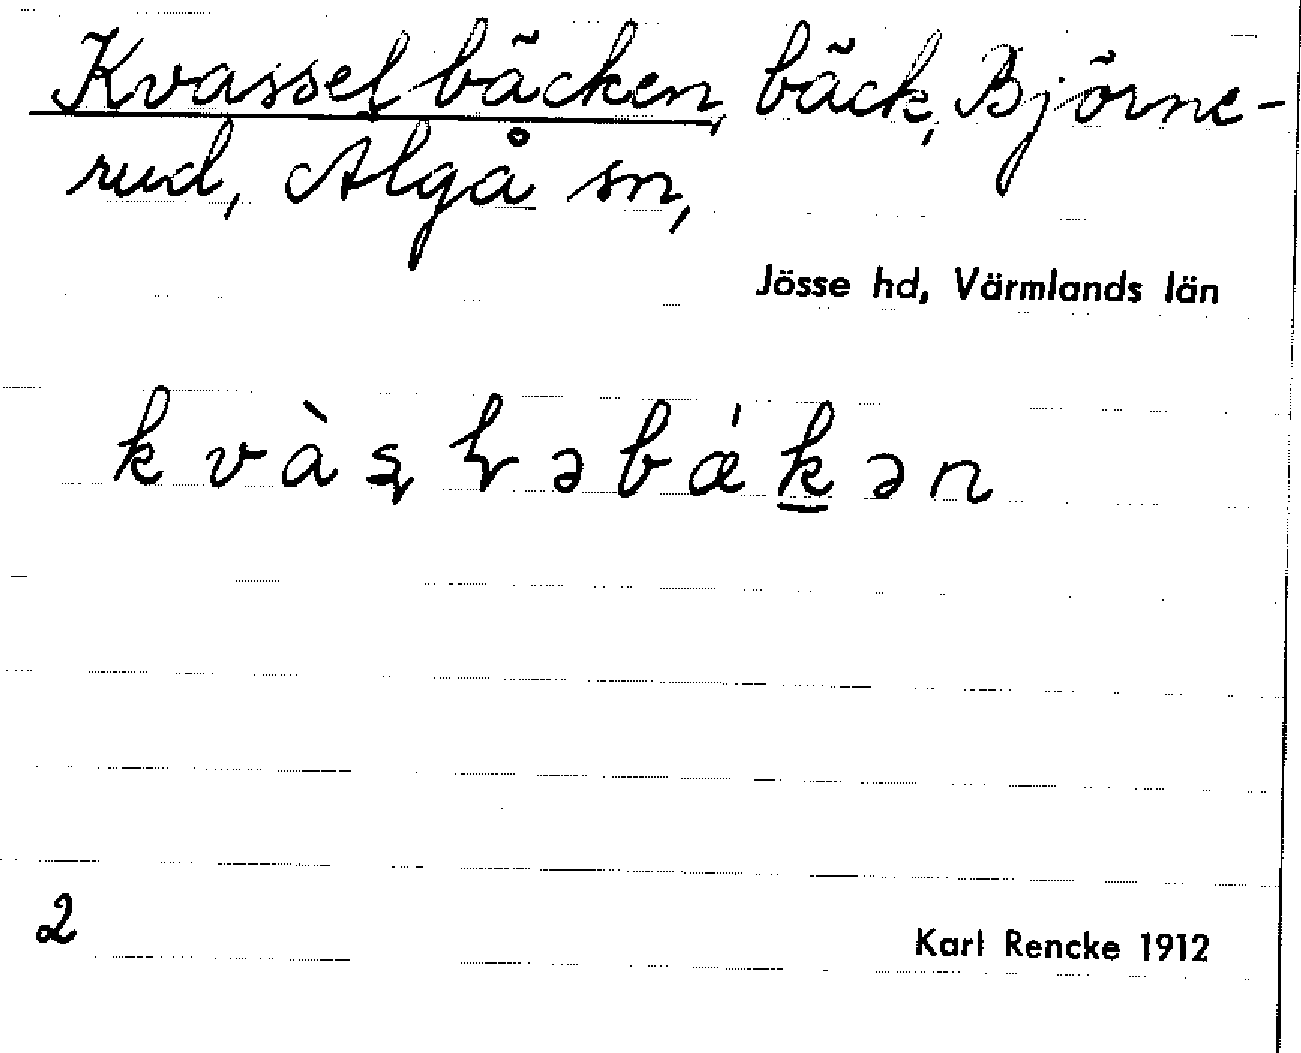 Kvasselbäcken, bäck, Björne-
rud, Älgå sn,
Jösse hd, Värmlands län
2
Karl Rencke 1912